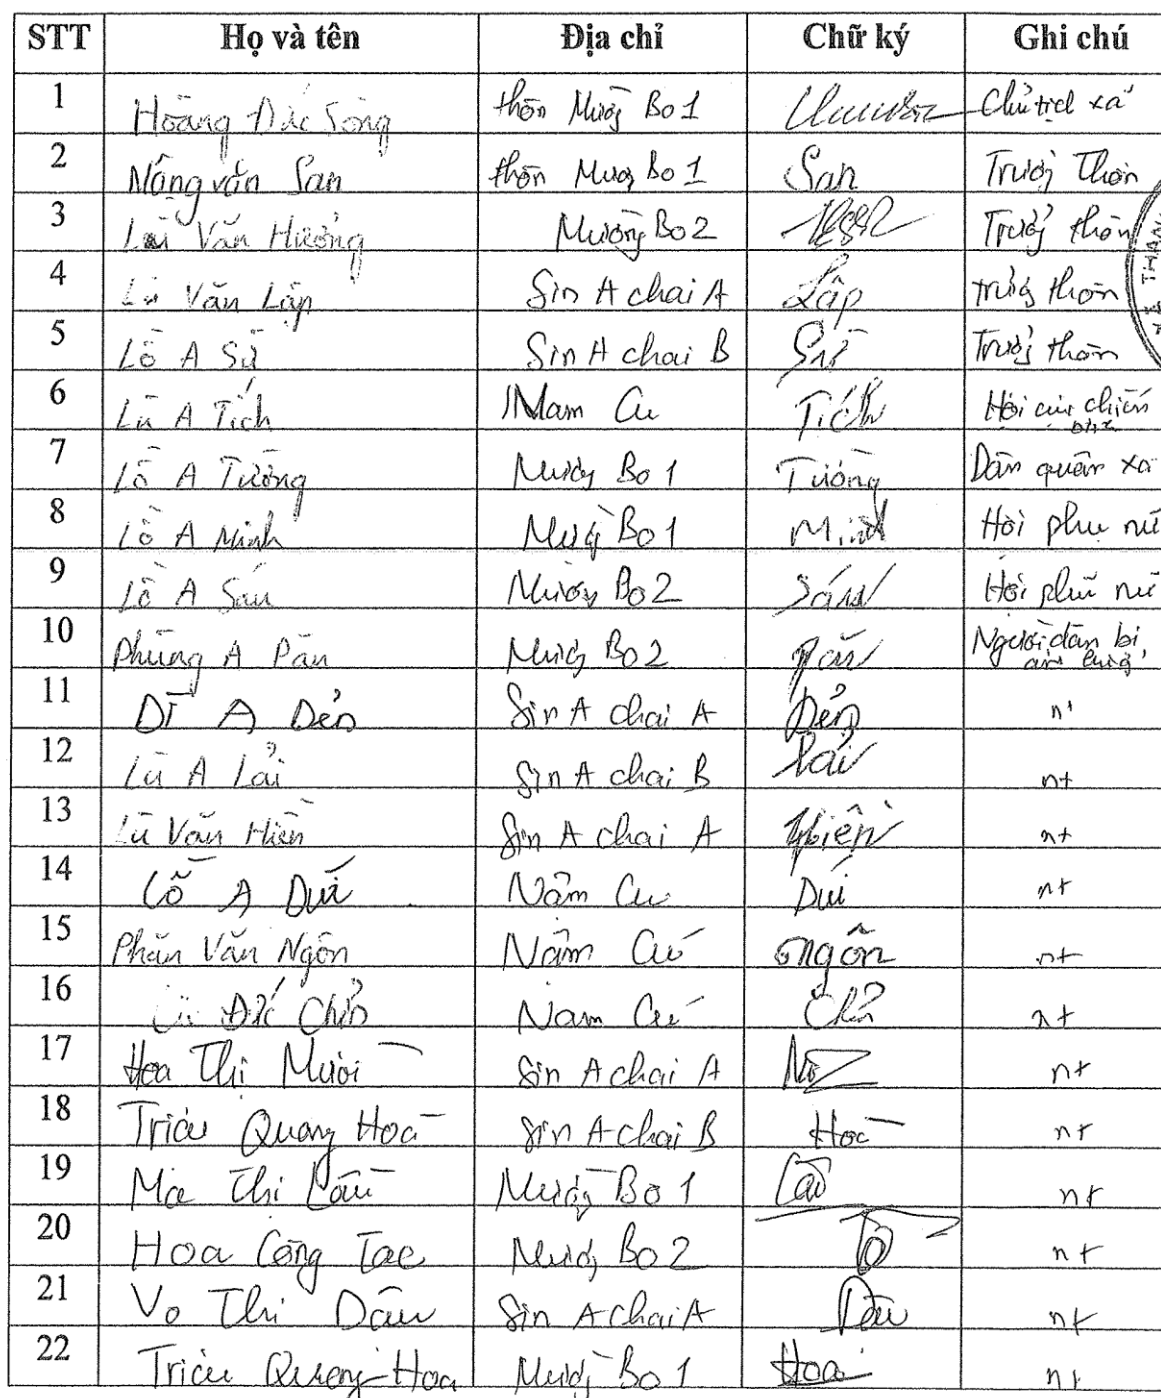 STT Họ và tên Địa chỉ Chữ ký Ghi chú
1 Hoàng Đức Song thôn Mường Bo 1 Chủ tịch xã
2 Nông văn San thôn Mường Bo 1 San Trưởng Thôn
3 Lù Văn Hưởng Mường Bo 2 Trưởng thôn
4 Lù Văn Lập Sín A chai A Lập trưởng thôn
5 Lồ A Sử Sín A chai B Sử Trưởng thôn
6 Lù A Tích Nam Cu Tích Hội cựu chiến binh
7 Lồ A Tường Mường Bo 1 Tường Dân quân xã
8 Lồ A Minh Mường Bo 1 Minh Hội phụ nữ
9 Lồ A Sáu Mường Bo 2 Hội phụ nữ
10 Phùng A Păn Mường Bo 2 Păn Người dân bị ảnh hưởng
11 DÌ A Dẻn Sín A chai A Dẻn nt
12 Lù A Lải Sín A chai B Lải nt
13 Lù Văn Hiền Sín A chai A Hiền nt
14 Lồ A Dứ Nậm Cu Dứ nt
15 Phàn Văn Ngôn Nậm Cú ngôn nt
16 Đức Chín Nam Cú nt
17 Hoa Thị Mười Sín A chai A nt
18 Triệu Quang Hoà Sín A chai B Hoà nt
19 Ma Thị Mường Bo 1 nt
20 Hoa Công Tac Mường Bo 2 nt
21 Vo Thi Dâu Sín A chai A Dâu nt
22 Triệu Quang Hoa Mường Bo 1 Hoa nt
THAN